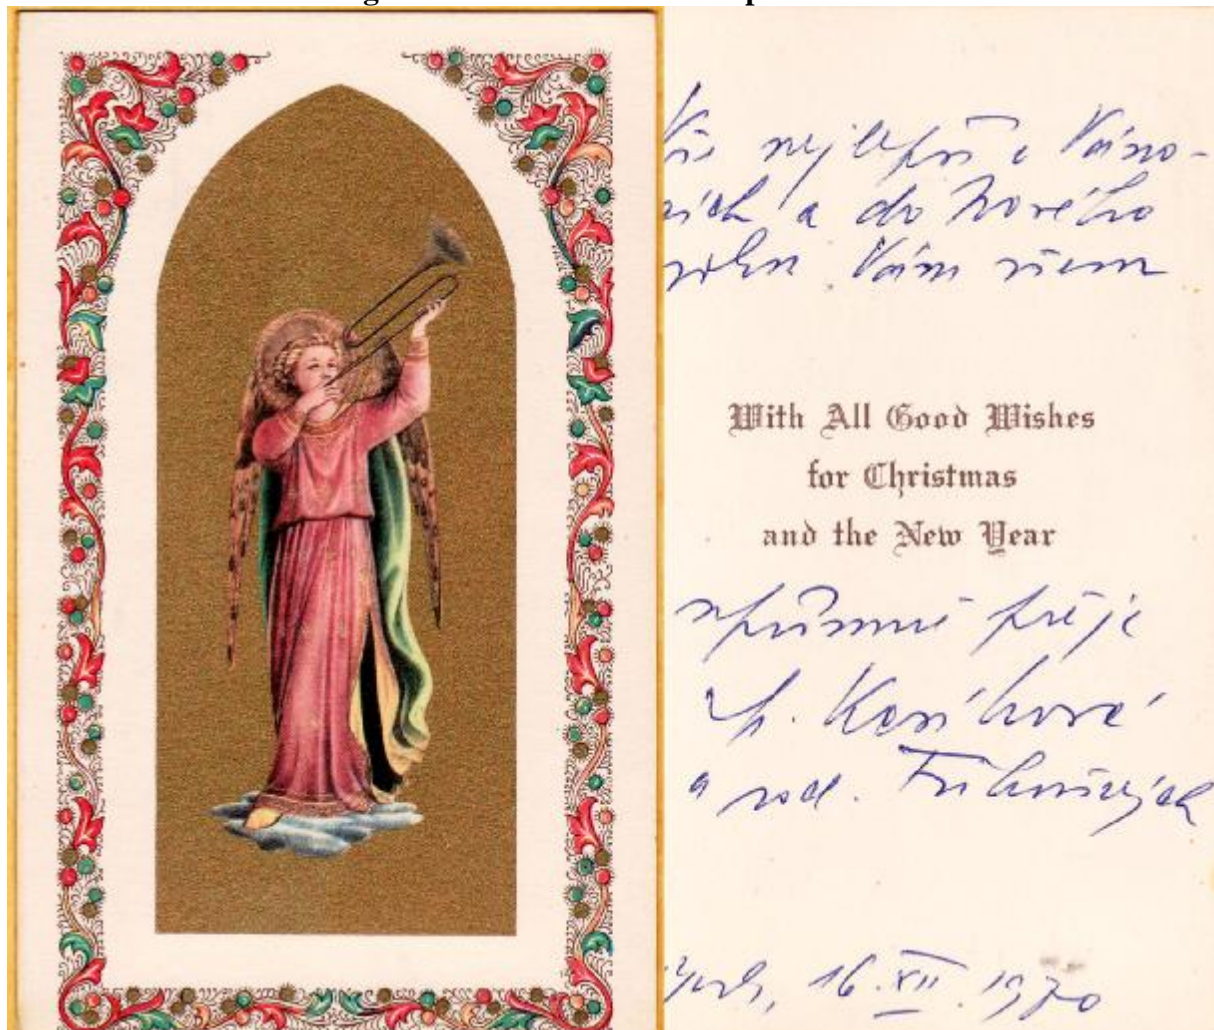 Vše nejlepší o Váno-
cích a do Nového
roku Vám všem
With All Good Wishes
for Christmas
and the New Year
upřímně přeje
a rod.
16.XII.1970